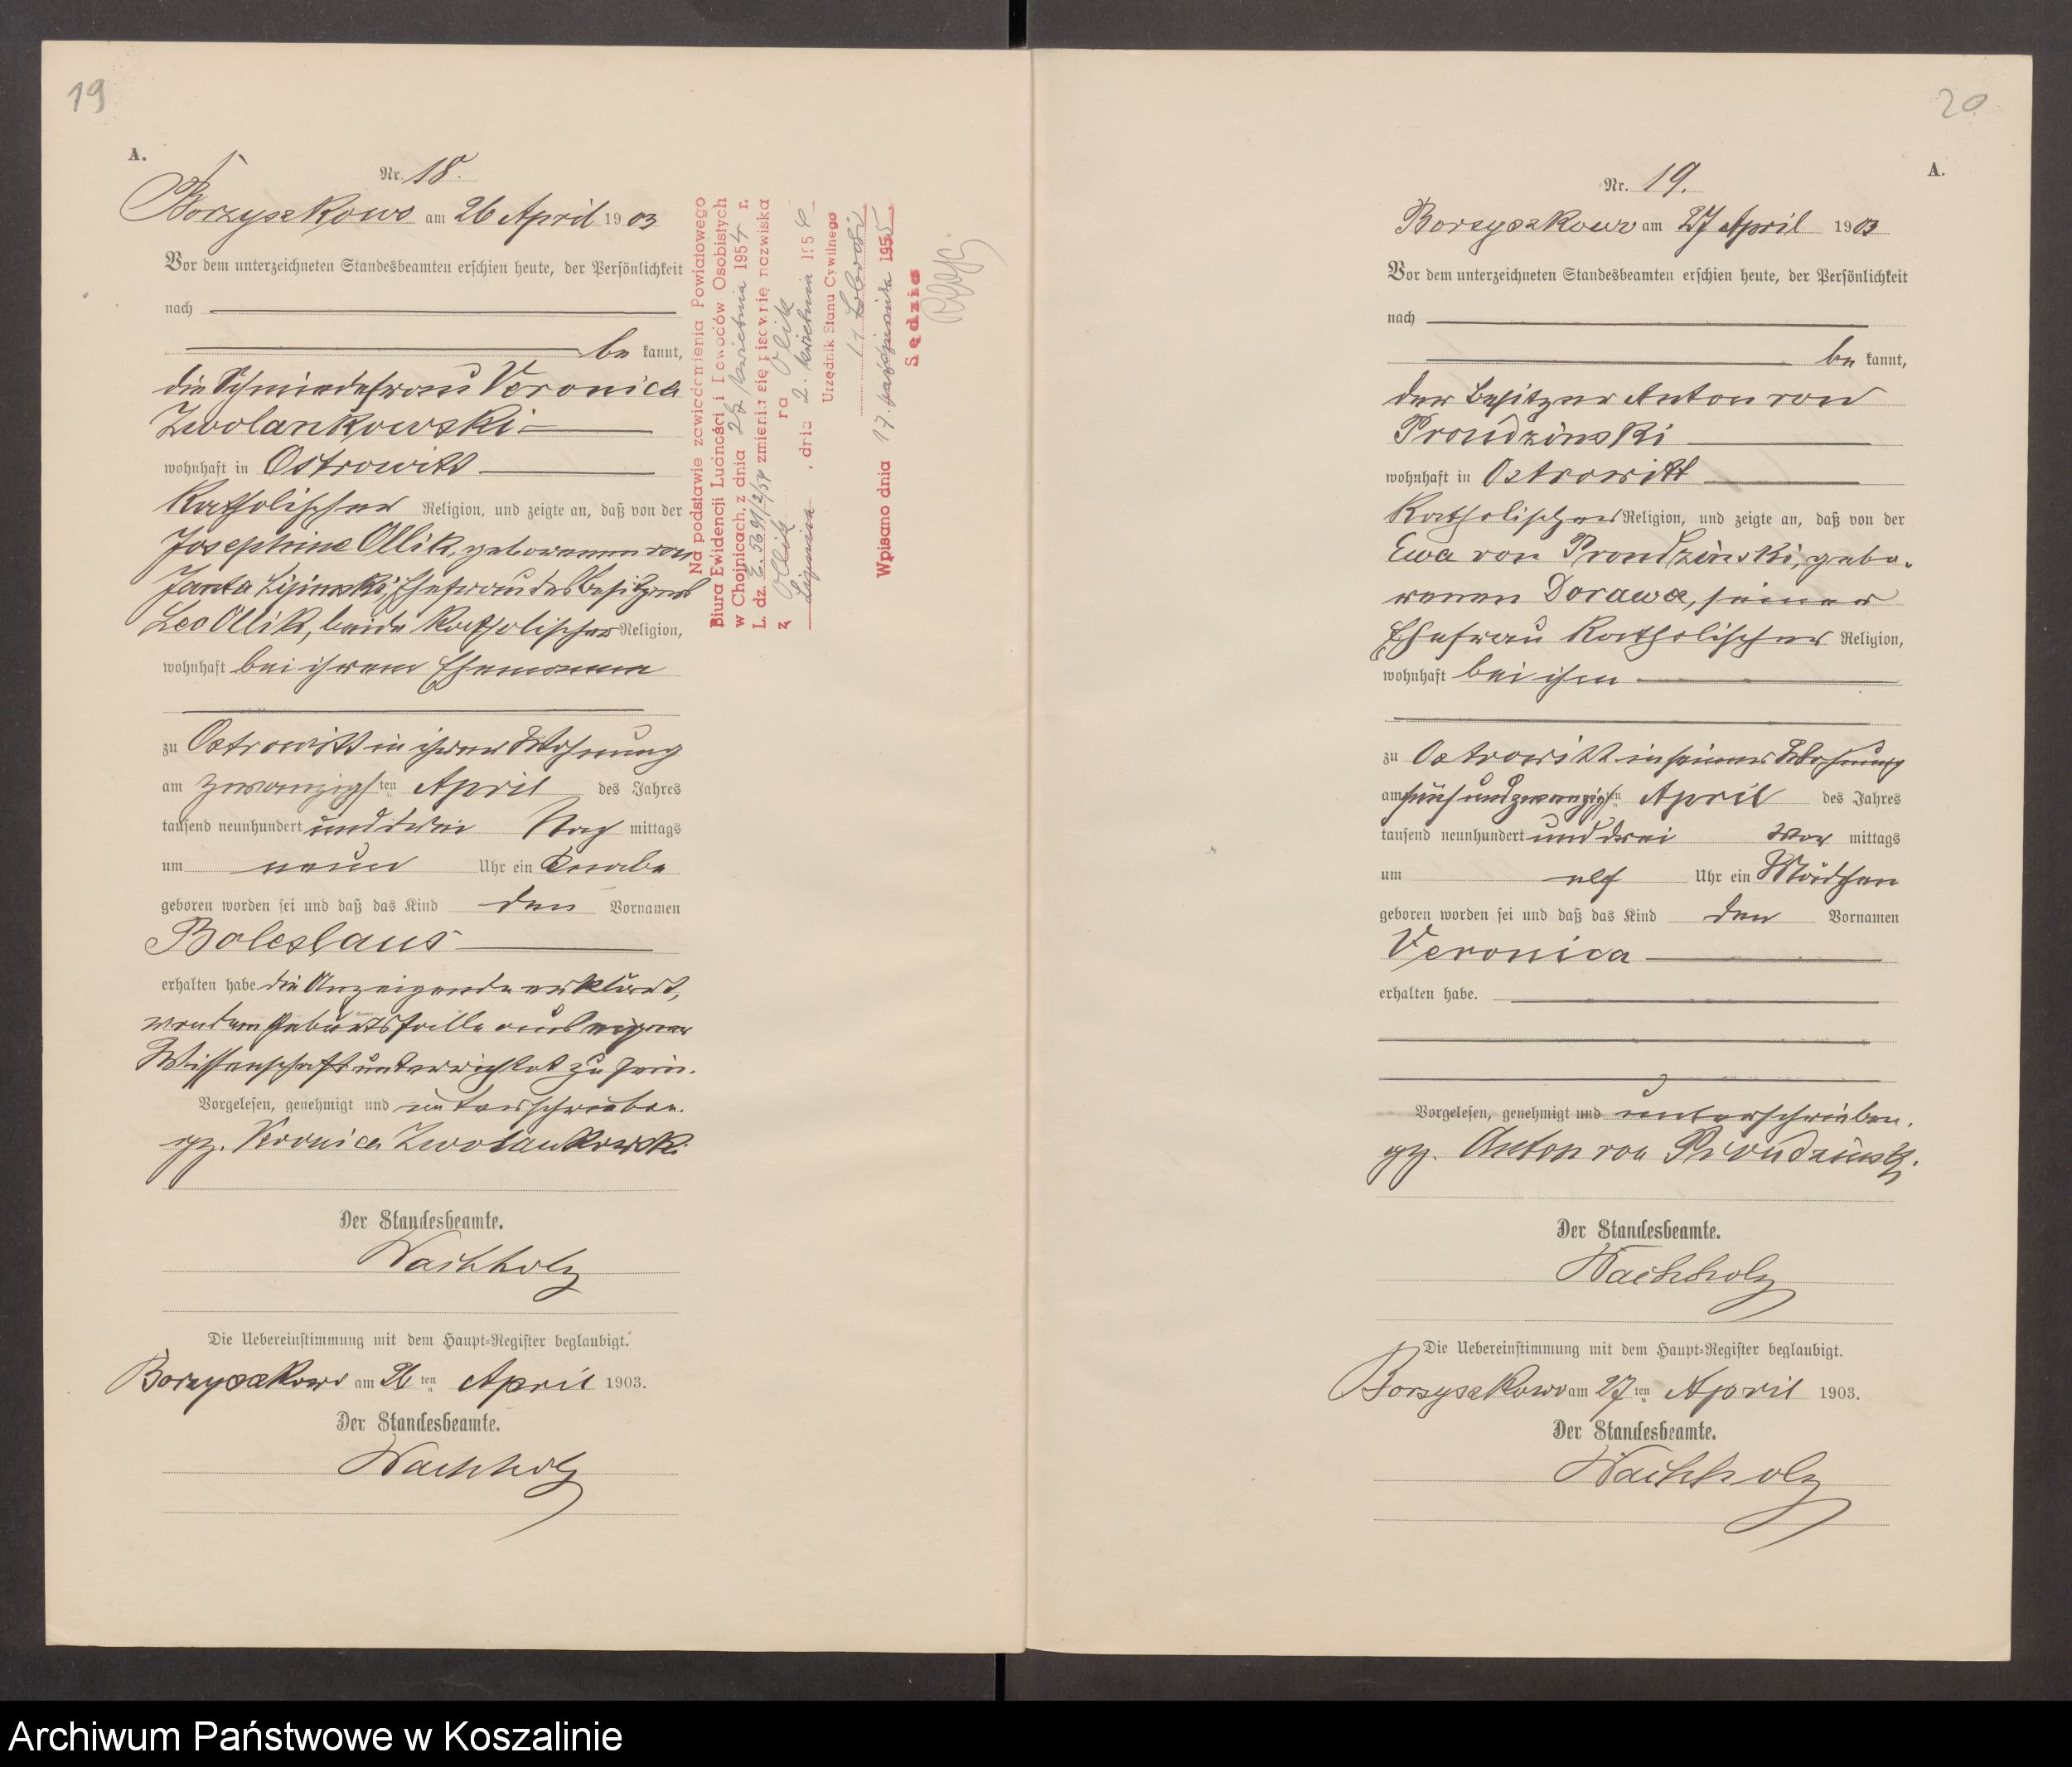 19
A.
Nr. 18.
Borzyszkowo am 26 April 1903
Vor dem unterzeichneten Standesbeamten erschien heute, der Persönlichkeit
nach
be kannt,
die Schmiedefrau Veronica
Zwolankowski
wohnhaft in Ostrowitt
Katholischer Religion, und zeigte an, daß von der
Josephine Ollik, geborenen von
Janta Lipinski, Ehefrau des Besitzers
Leo Ollik, beide katholischer Religion,
wohnhaft bei ihrem Ehemanne
zu Ostrowitt in ihrer Wohnung
am zwanzigsten April des Jahres
tausend neunhundert und drei Nach mittags
um neun Uhr ein Knabe
geboren worden sei und daß das Kind den Vornamen
Boleslaus
erhalten habe. die Anzeigende erklärt,
von dem Geburtsfalle aus eigener
Wissenschaft unterrichtet zu sein.
Vorgelesen, genehmigt und unterschrieben.
gz. Veronica Zwolankowski
Der Standesbeamte.
Wachholz
Die Uebereinstimmung mit dem Haupt-Register beglaubigt.
Borzyszkowo am 26 ten April 1903.
Der Standesbeamte.
Wachholz
Na podstawie zawiadomienia Powiatowego
Biura Ewidencji Ludności i Dowodów Osobistych
w Chojnicach, z dnia 28 kwietnia 1954 r.
L. dz. E. 5691/2/54 zmienia się pisownię nazwiska
z Ollik na Olik
Lipnica, dnia 2. kwietnia 195
Urzędnik Stanu Cywilnego
Wpisano dnia 17. października 195
Sędzia
20
A.
Nr. 19.
Borzyszkowo am 27 April 1903
Vor dem unterzeichneten Standesbeamten erschien heute, der Persönlichkeit
nach
be kannt,
der Besitzer Anton von
Prondzinski
wohnhaft in Ostrowitt
Katholischer Religion, und zeigte an, daß von der
Ewa von Prondzinski, gebo-
renen Dorawa, seiner
Ehefrau katholischer Religion,
wohnhaft bei ihm
zu Ostrowitt in seiner Wohnung
am fünfundzwanzigsten April des Jahres
tausend neunhundert und drei Vor mittags
um elf Uhr ein Mädchen
geboren worden sei und daß das Kind den Vornamen
Veronica
erhalten habe.
Vorgelesen, genehmigt und unterschrieben.
gz. Anton von Prondzinski.
Der Standesbeamte.
Wachholz
Die Uebereinstimmung mit dem Haupt-Register beglaubigt.
Borzyszkowo am 27 ten April 1903.
Der Standesbeamte.
Wachholz
Archiwum Państwowe w Koszalinie